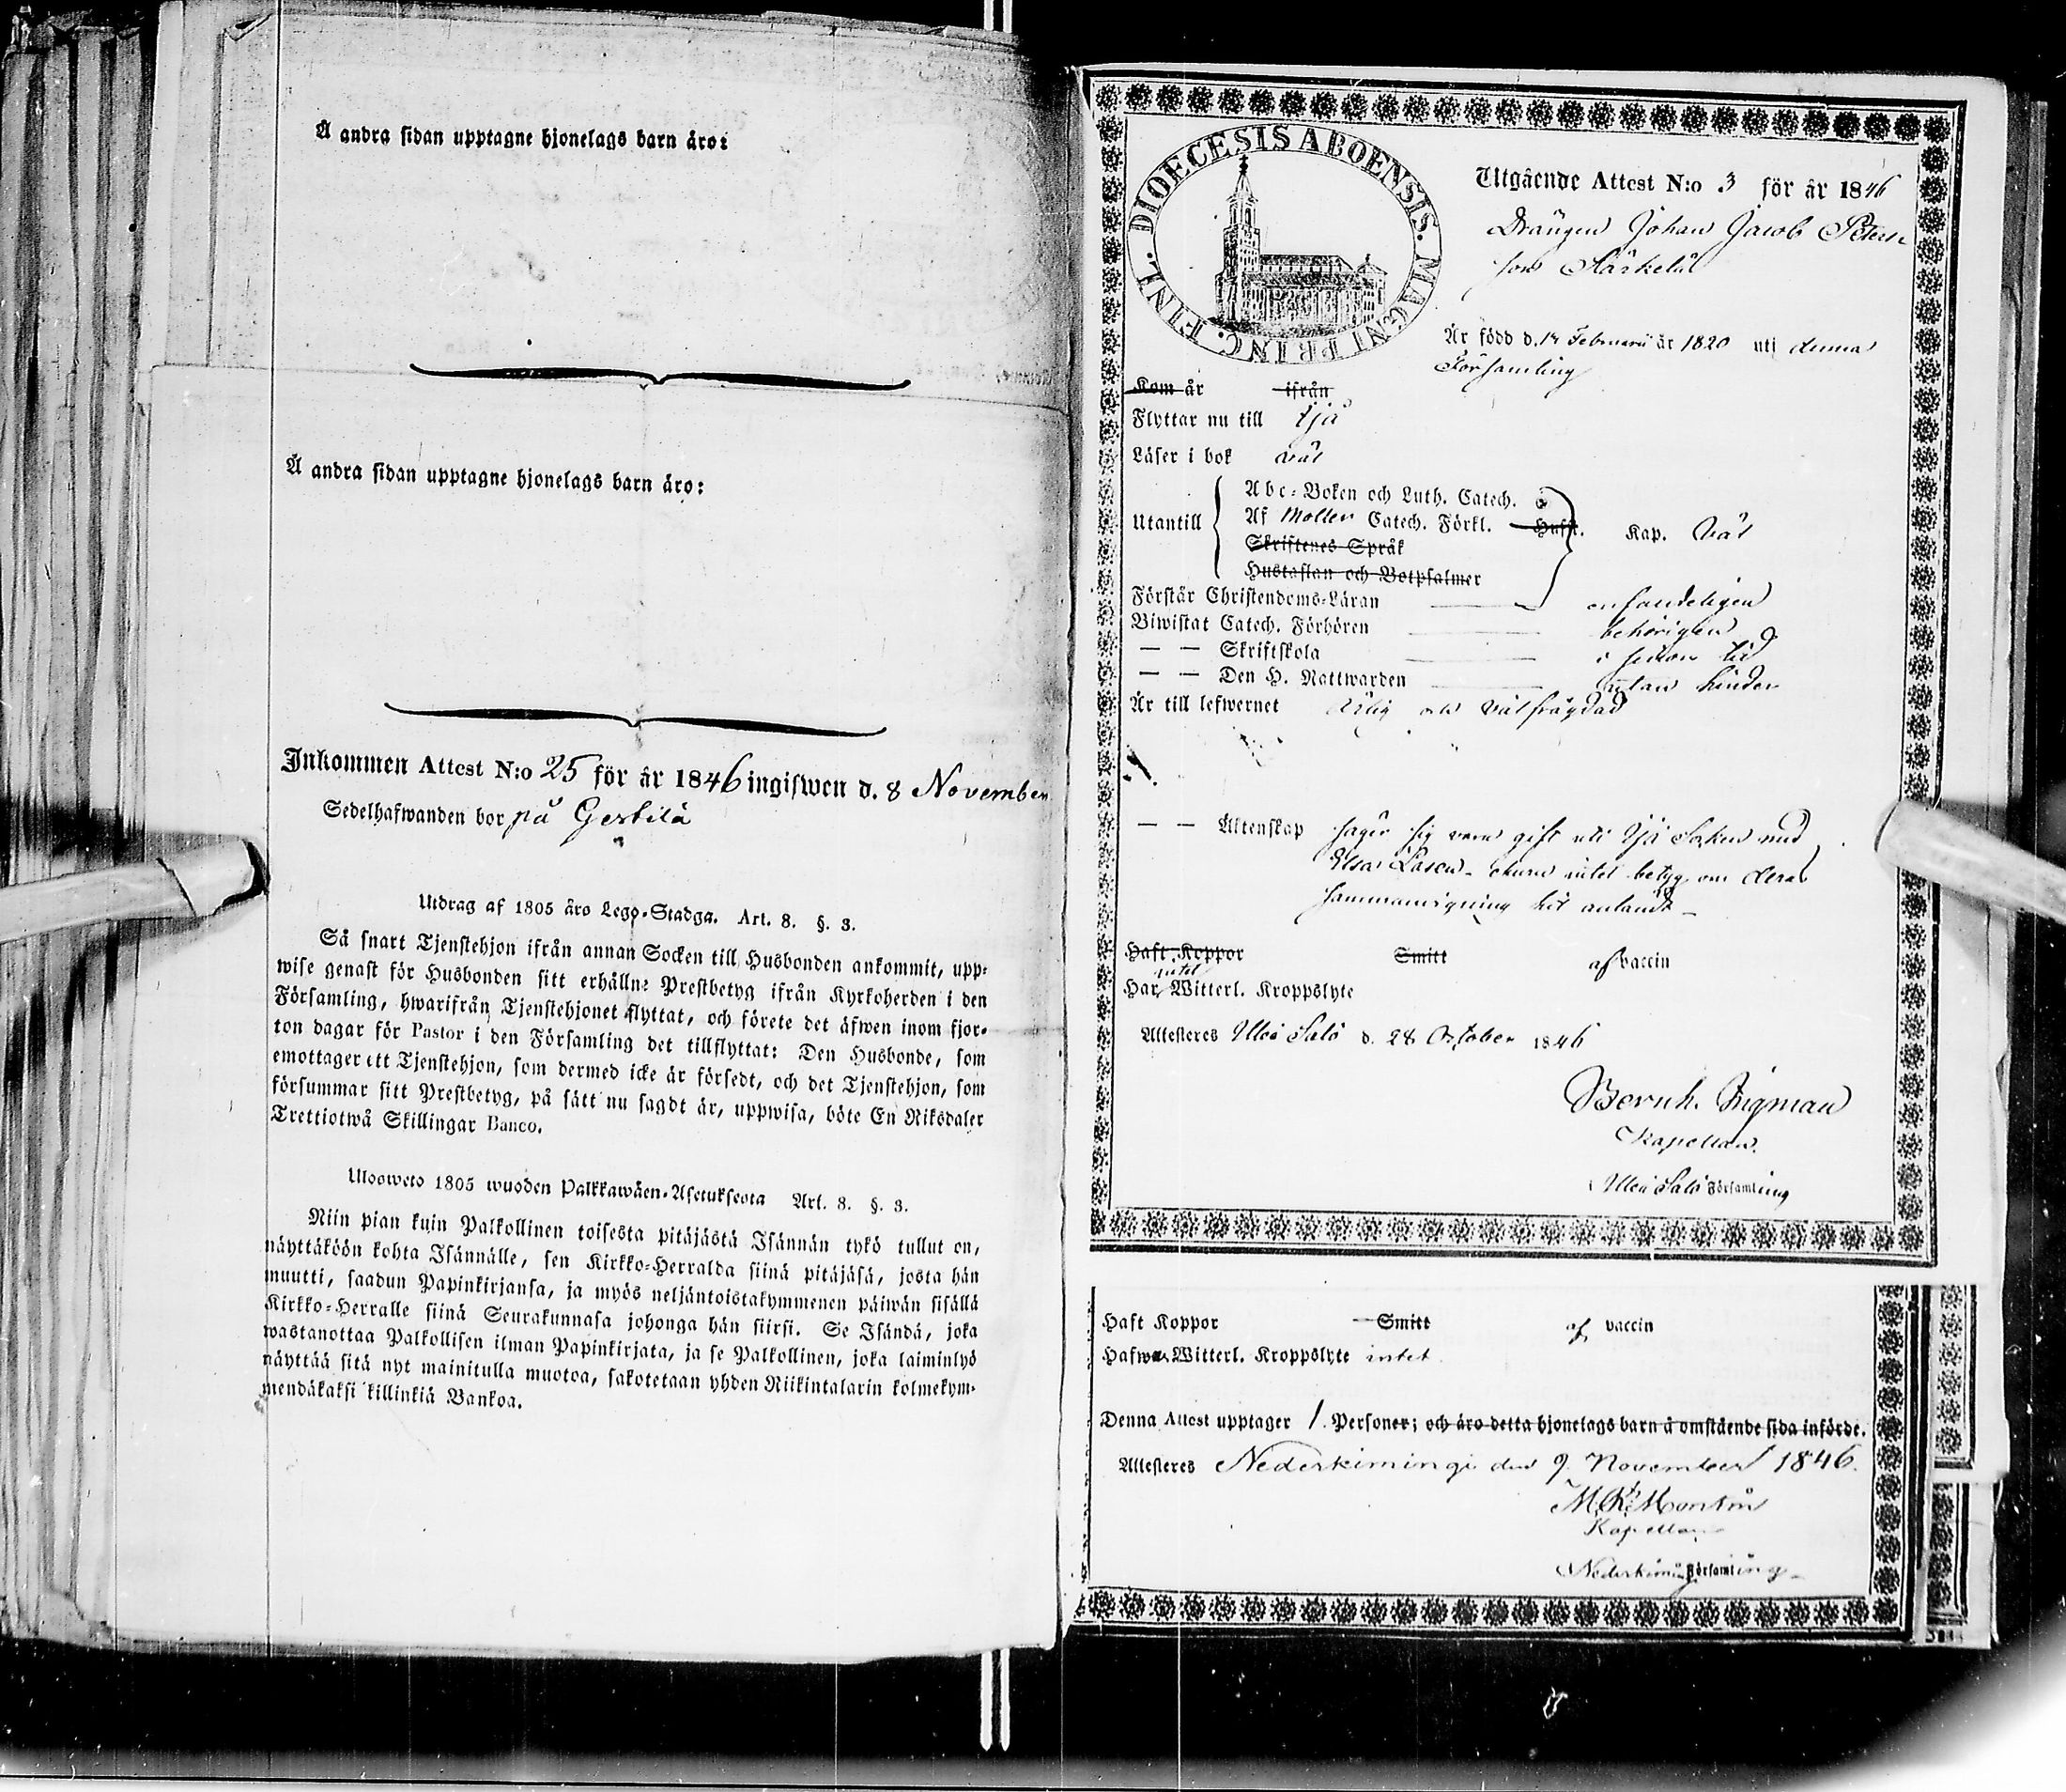 Å andra sidan upptagne hjonelags barn äro:
Å andra sidan upptagne hjonelags barn äro:
Inkommen Attest N:o 25 för år 1846 ingifwen d. 8 November
Sedelhafwanden bor på Gestilä
Utdrag af 1805 års Lego-Stadga. Art. 8. §. 3.
Så snart Tjenstehjon ifrån annan Socken till Husbonden ankommit, upp-
wise genast för Husbonden sitt erhållne Prestbetyg ifrån Kyrkoherden i den
Församling, hwarifrån Tjenstehjonet flyttat, och förete det äfwen inom fjor-
ton dagar för Pastor i den Församling det tillflyttat: Den Husbonde, som
emottager ett Tjenstehjon, som dermed icke är försedt, och det Tjenstehjon, som
försummar sitt Prestbetyg, på sätt nu sagdt är, uppwisa, böte En Riksdaler
Trettiotwå Skillingar Banco.
Ulosweto 1805 wuoden Palkkawäen-Asetuksesta Art. 8. §. 3.
Niin pian kuin Palkollinen toisesta pitäjästä Isännän tykö tullut on,
näyttäköön kohta Isännälle, sen Kirkko-Herralda siinä pitäjäsä, josta hän
muutti, saadun Papinkirjansa, ja myös neljäntoistakymmenen päiwän sisällä
Kirkko-Herralle siinä Seurakunnasa johonga hän siirsi. Se Isändä, joka
wastanottaa Palkollisen ilman Papinkirjata, ja se Palkollinen, joka laiminlyö
näyttää sitä nyt mainitulla muotoa, sakotetaan yhden Riikintalarin kolmekym-
mendäkaksi killinkiä Bankoa.
DIOECESIS ABOENSIS. MAGNI PRINC. FINL.
Utgående Attest N:o 3 för år 1846
Drängen Johan Jacob Peters
son Särkelä
Är född d. 14 Februarii år 1820 uti denna
Församling
Kom år ifrån
Flyttar nu till Ijå
Läser i bok väl
Abc-Boken och Luth. Catech.
Utantill Af Möller Catech. Förkl. Husst. Kap. väl
Skriftenes Språk
Hustaflan och Botpsalmer
Förstår Christendoms-Läran enfaldeligen
Biwistat Catech. Förhören behörigen
— — Skriftskola i sinom tid
— — Den H. Nattwarden utan hinder
Är till lefwernet Ärlig och välfrägdad
— — Äktenskap säger sig vara gift uti Ijå Socken med
Elsa Lasen, churu intet betyg om deras
sammanvigning hit anländt —
Haft Koppor Smitt af vaccin
intet
Har Witterl. Kroppslyte
Attesteres Uleå Salo d. 28 October 1846
Bernh. Bigman
Kapellan.
Uleå Salo Församling
Haft Koppor Smitt af vaccin
Hafwa Witterl. Kroppslyte intet
Denna Attest upptager 1. Personer; och äro detta hjonelags barn å omstående sida införde.
Attesteres Nederkimingi den 9 November 1846.
M. R. Montin
Kapellan
Nederkimingi Församling